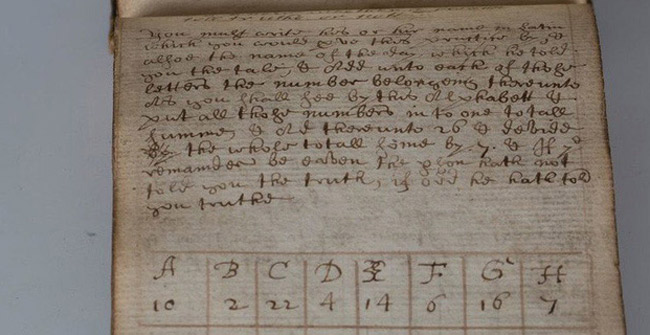 You must write his or her name in Latin
which you would give this
allsoe the name of the day which he told
you the tale, & Add unto each of those
letters the number belonging thereunto
As you shall see by this Alphabett &
put all those numbers in to one totall
summe, & Ad thereunto 26 & devide
the whole totall some by .7. & If ye
remainder be eaven the pson hath not
told you the truth, if odd he hath told
you truthe
A B C D E F G H
10 2 22 4 14 6 16 7